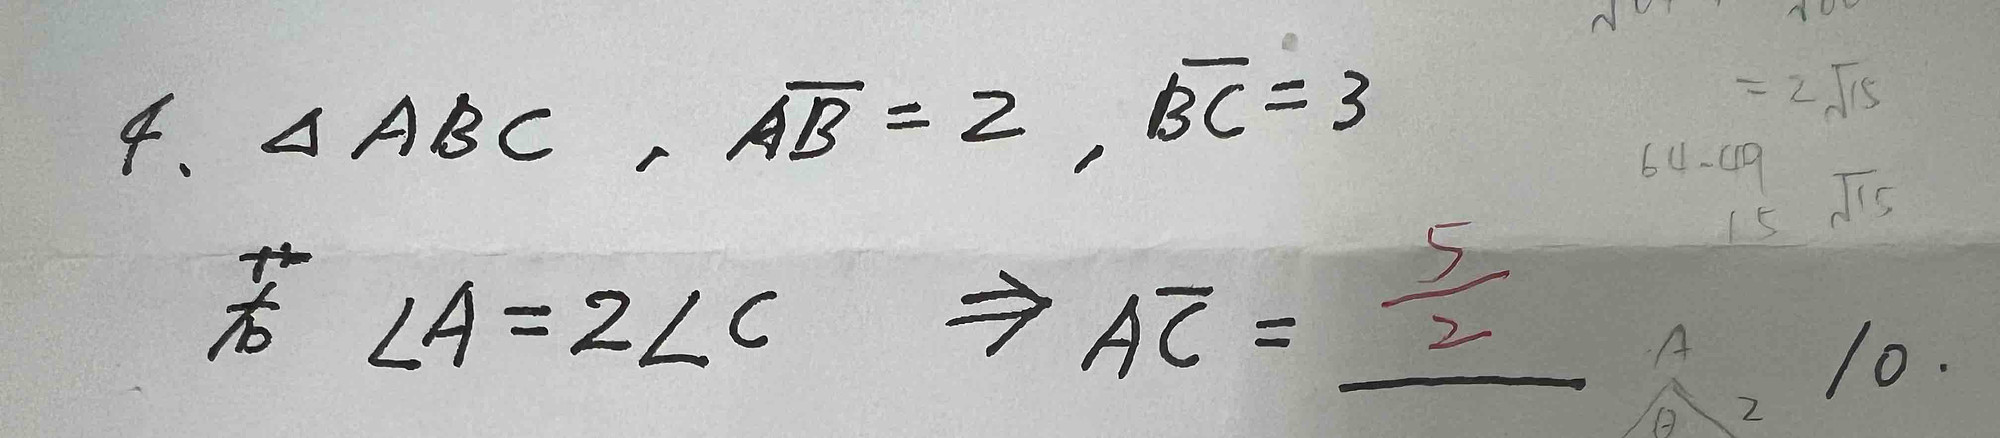 4. △ABC , A̅B̅ = 2 , B̅C̅ = 3
若 ∠A = 2∠C ⇒ A̅C̅ = 5/2
10.
= 2√15
64-49
15 √15
A
θ 2